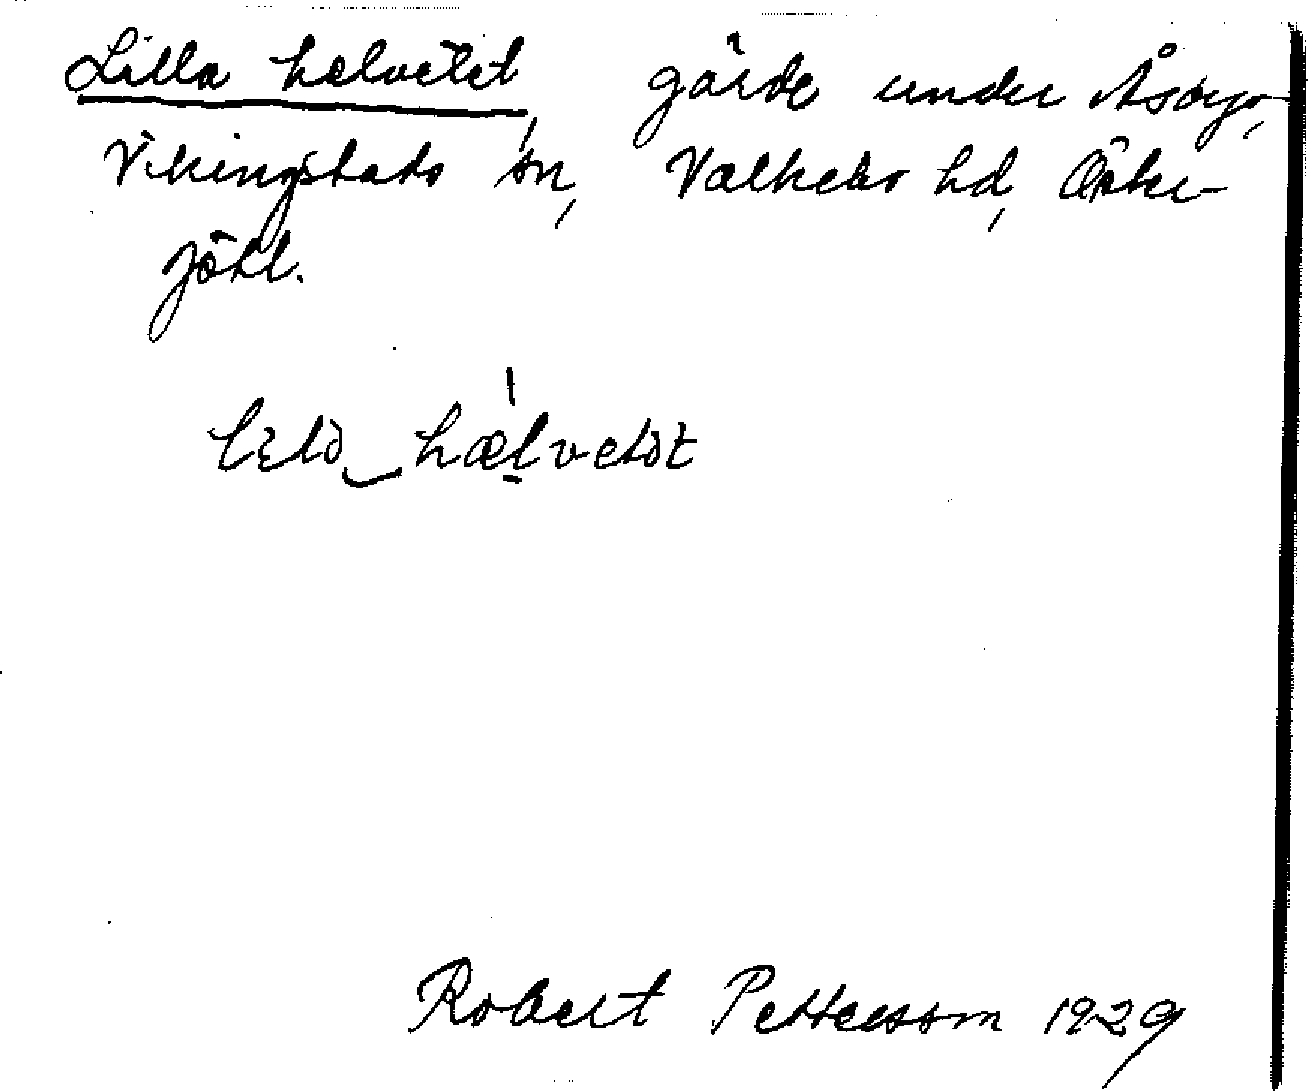 Lilla helvetet, gärde under Åsbys,
Vikingstads sn, Valkebo hd, Öster-
götl.
Robert Pettersson 1929